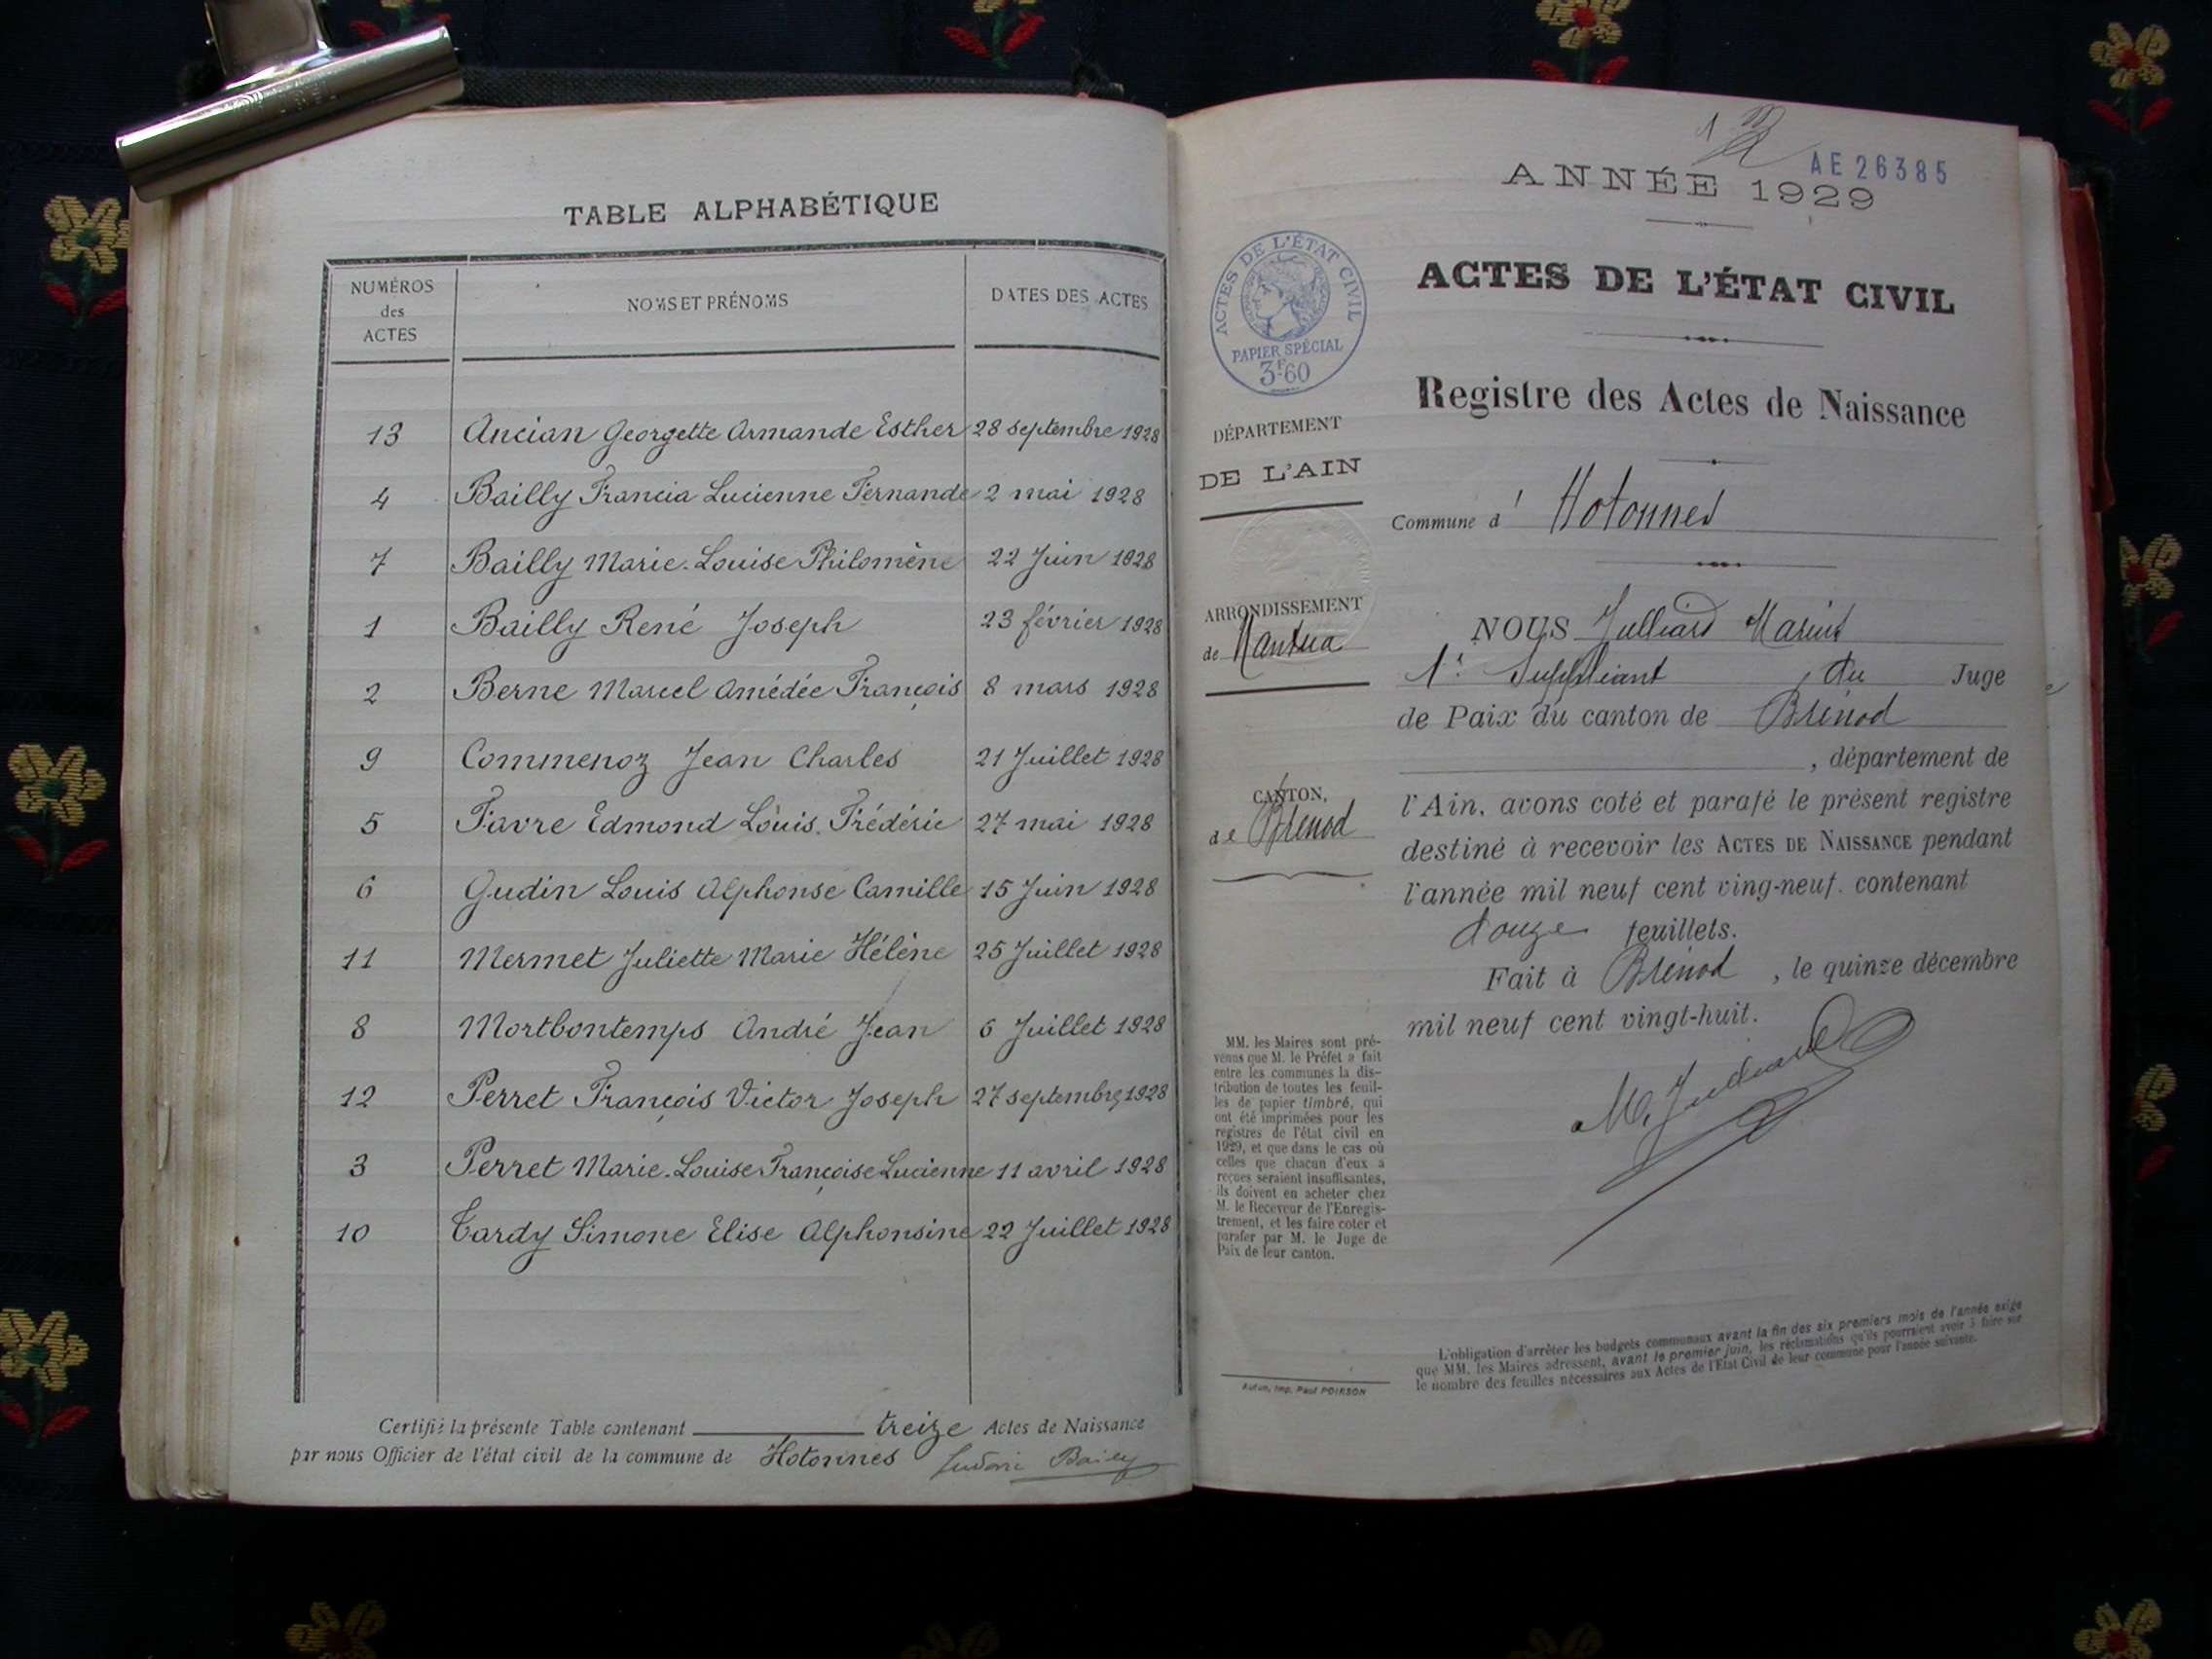 TABLE ALPHABÉTIQUE
NUMÉROS des ACTES NOMS ET PRÉNOMS DATES DES ACTES
13 Ancian Georgette Armande Esther 28 septembre 1928
4 Bailly Francia Lucienne Fernande 2 mai 1928
7 Bailly Marie-Louise Philomène 22 Juin 1928
1 Bailly René Joseph 23 février 1928
2 Berne Marcel Amédée François 8 mars 1928
9 Commenoz Jean Charles 21 Juillet 1928
5 Favre Edmond Louis Frédéric 27 mai 1928
6 Gudin Louis Alphonse Camille 15 Juin 1928
11 Mermet Juliette Marie Hélène 25 Juillet 1928
8 Mortbontemps André Jean 6 Juillet 1928
12 Perret François Victor Joseph 27 septembre 1928
3 Perret Marie-Louise Françoise Lucienne 11 avril 1928
10 Tardy Simone Elise Alphonsine 22 Juillet 1928
Certifié la présente Table contenant treize Actes de Naissance
par nous Officier de l'état civil de la commune de Hotonnes
AE 26385
ANNÉE 1929
ACTES DE L'ÉTAT CIVIL
PAPIER SPÉCIAL
3F.60
ACTES DE L'ÉTAT CIVIL
Registre des Actes de Naissance
DÉPARTEMENT
DE L'AIN
Commune d' Hotonnes
ARRONDISSEMENT
de Nantua
CANTON,
de Brénod
NOUS Julliard Marius
1er Suppléant du Juge
de Paix du canton de Brénod
, département de
l'Ain, avons coté et parafé le présent registre
destiné à recevoir les ACTES DE NAISSANCE pendant
l'année mil neuf cent ving-neuf. contenant
douze feuillets.
Fait à Brénod , le quinze décembre
mil neuf cent vingt-huit.
M. Julliard
MM. les Maires sont pré-
venus que M. le Préfet a fait
entre les communes la dis-
tribution de toutes les feuil-
les de papier timbré, qui
ont été imprimées pour les
registres de l'état civil en
1929, et que dans le cas où
celles que chacun d'eux a
reçues seraient insuffisantes,
ils doivent en acheter chez
M. le Receveur de l'Enregis-
trement, et les faire coter et
parafer par M. le Juge de
Paix de leur canton.
Autun, Imp. Paul POIRSON
L'obligation d'arrêter les budgets communaux avant la fin des six premiers mois de l'année exige
que MM. les Maires adressent, avant le premier juin, les réclamations qu'ils pourraient avoir à faire sur
le nombre des feuilles nécessaires aux Actes de l'Etat Civil de leur commune pour l'année suivante.